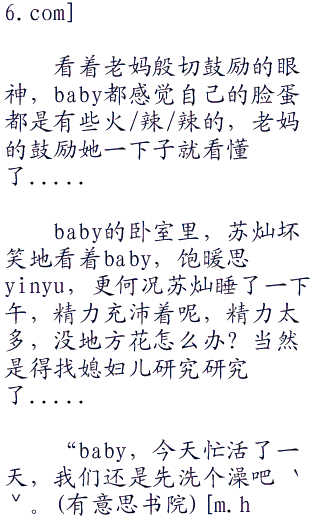 6.com]
看着老妈殷切鼓励的眼
神，baby都感觉自己的脸蛋
都是有些火/辣/辣的，老妈
的鼓励她一下子就看懂
了.....
baby的卧室里，苏灿坏
笑地看着baby，饱暖思
yinyu，更何况苏灿睡了一下
午，精力充沛着呢，精力太
多，没地方花怎么办？当然
是得找媳妇儿研究研究
了.....
“baby，今天忙活了一
天，我们还是先洗个澡吧｀
ˇ。(有意思书院)[m.h